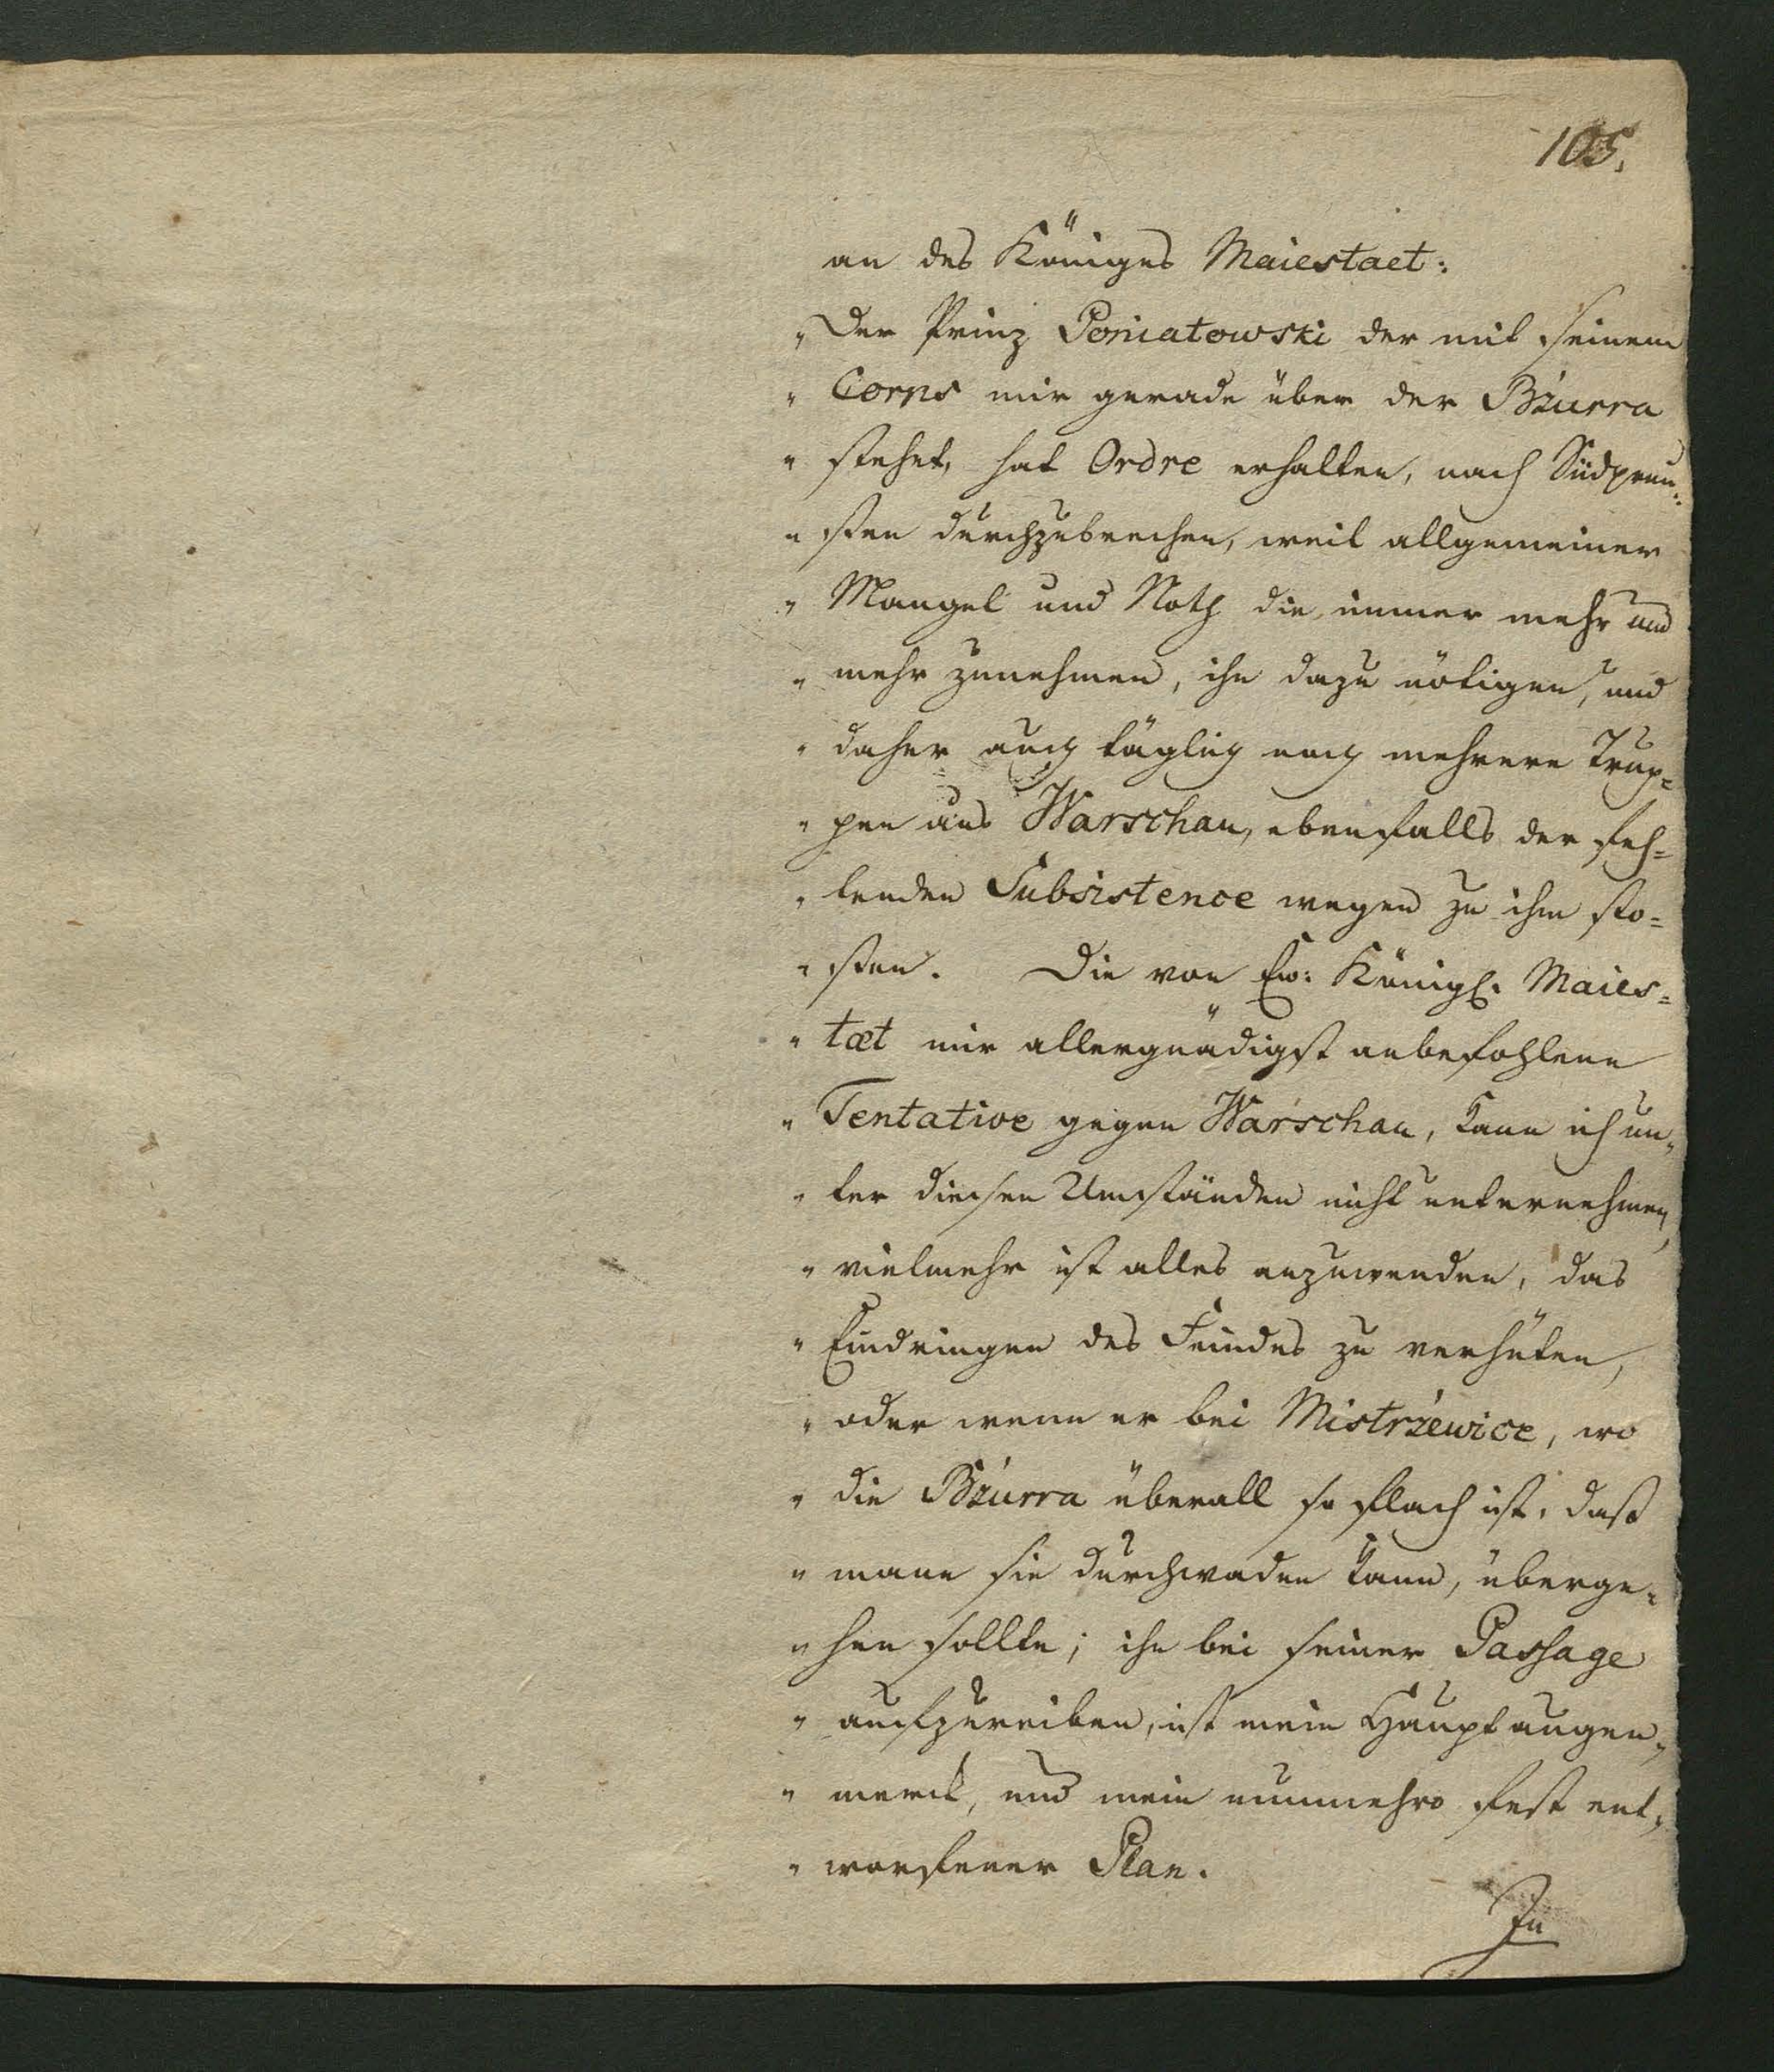 105.
an des Königes Maiestaet:
„ Der Prinz Poniatowski der mit seinem
„ Corps mir gerade über der Bzurra
„ stehet, hat Ordre erhalten, nach Südpreu¬
„ ßen durchzubrechen, weil allgemeiner
„ Mangel und Noth die immer mehr und
„ mehr zunehmen, ihn dazu nötigen, und
„ daher auch täglich noch mehrere Trup¬
„ pen aus Warschau, ebenfalls der feh¬
„ lenden Subsistence wegen zu ihm sto¬
„ ßen. Die von Ew: Königl. Maies¬
„ taet mir allergnädigst anbefohlene
„ Tentative gegen Warschau, kann ich un¬
„ ter diesen Umständen nicht unternehmen,
„ vielmehr ist alles anzuwenden, das
„ Eindringen des Feindes zu verhüten,
„ oder wenn er bei Mistrzewice, wo
„ die Bzurra überall so flach ist, daß
„ mann sie durchwaden kann, überge¬
„ hen sollte; ihn bei seiner Passage
„ aufzureiben, ist mein Hauptaugen¬
„ merck, und mein nunmehro fest ent¬
„ worfener Plan.
In